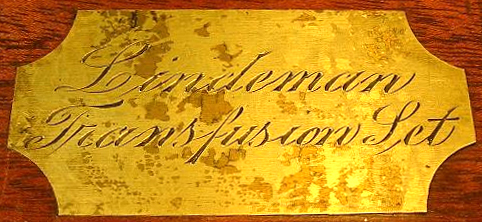 Lindeman
Transfusion Set